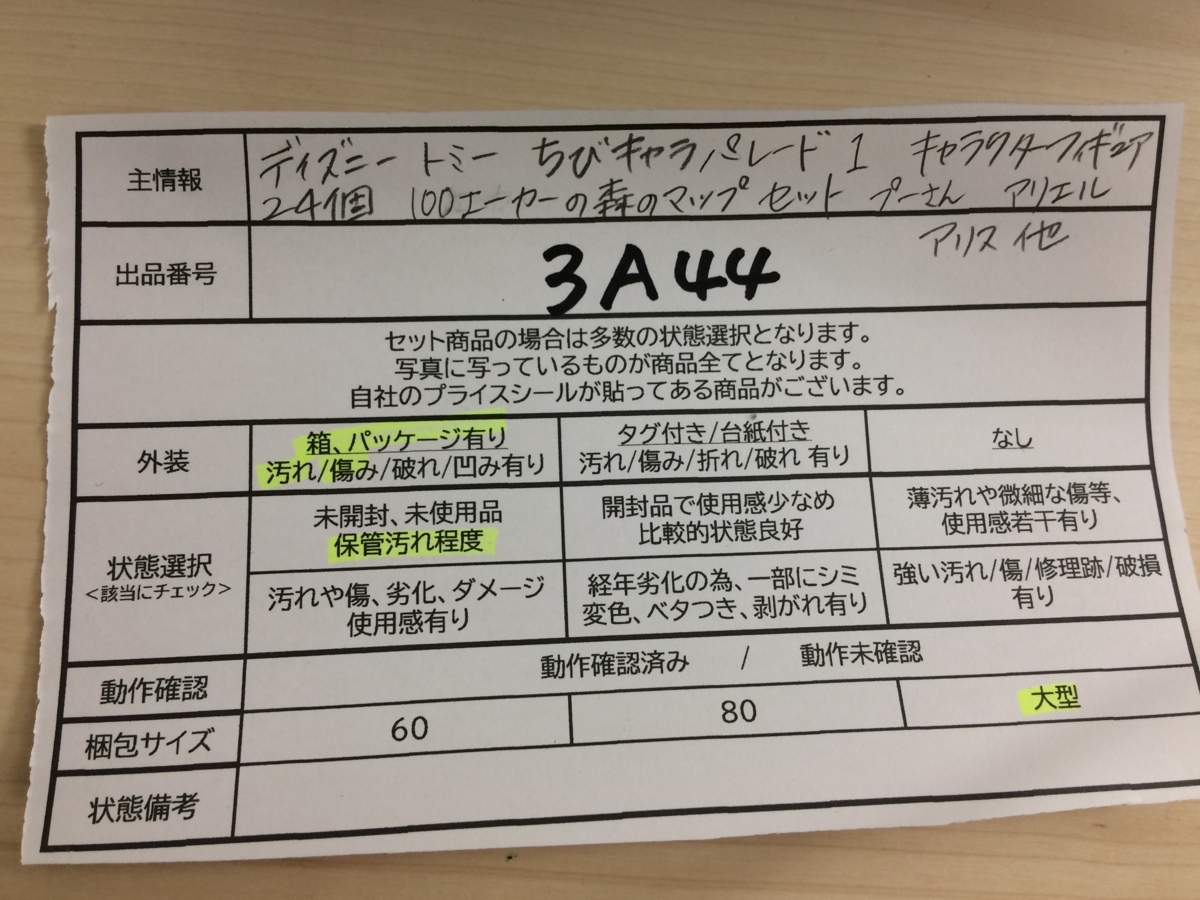 主情報
ディズニー トミー ちびキャラパレード1 キャラクターフィギュア
24個 100エーカーの森のマップ セット プーさん アリエル
アリス 他
出品番号
3A44
セット商品の場合は多数の状態選択となります。
写真に写っているものが商品全てとなります。
自社のプライスシールが貼ってある商品がございます。
外装
箱、パッケージ有り
汚れ/傷み/破れ/凹み有り
タグ付き/台紙付き
汚れ/傷み/折れ/破れ 有り
なし
状態選択
<該当にチェック>
未開封、未使用品
保管汚れ程度
開封品で使用感少なめ
比較的状態良好
薄汚れや微細な傷等、
使用感若干有り
汚れや傷、劣化、ダメージ
使用感有り
経年劣化の為、一部にシミ
変色、ベタつき、剥がれ有り
強い汚れ/傷/修理跡/破損
有り
動作確認
動作確認済み / 動作未確認
梱包サイズ
60
80
大型
状態備考